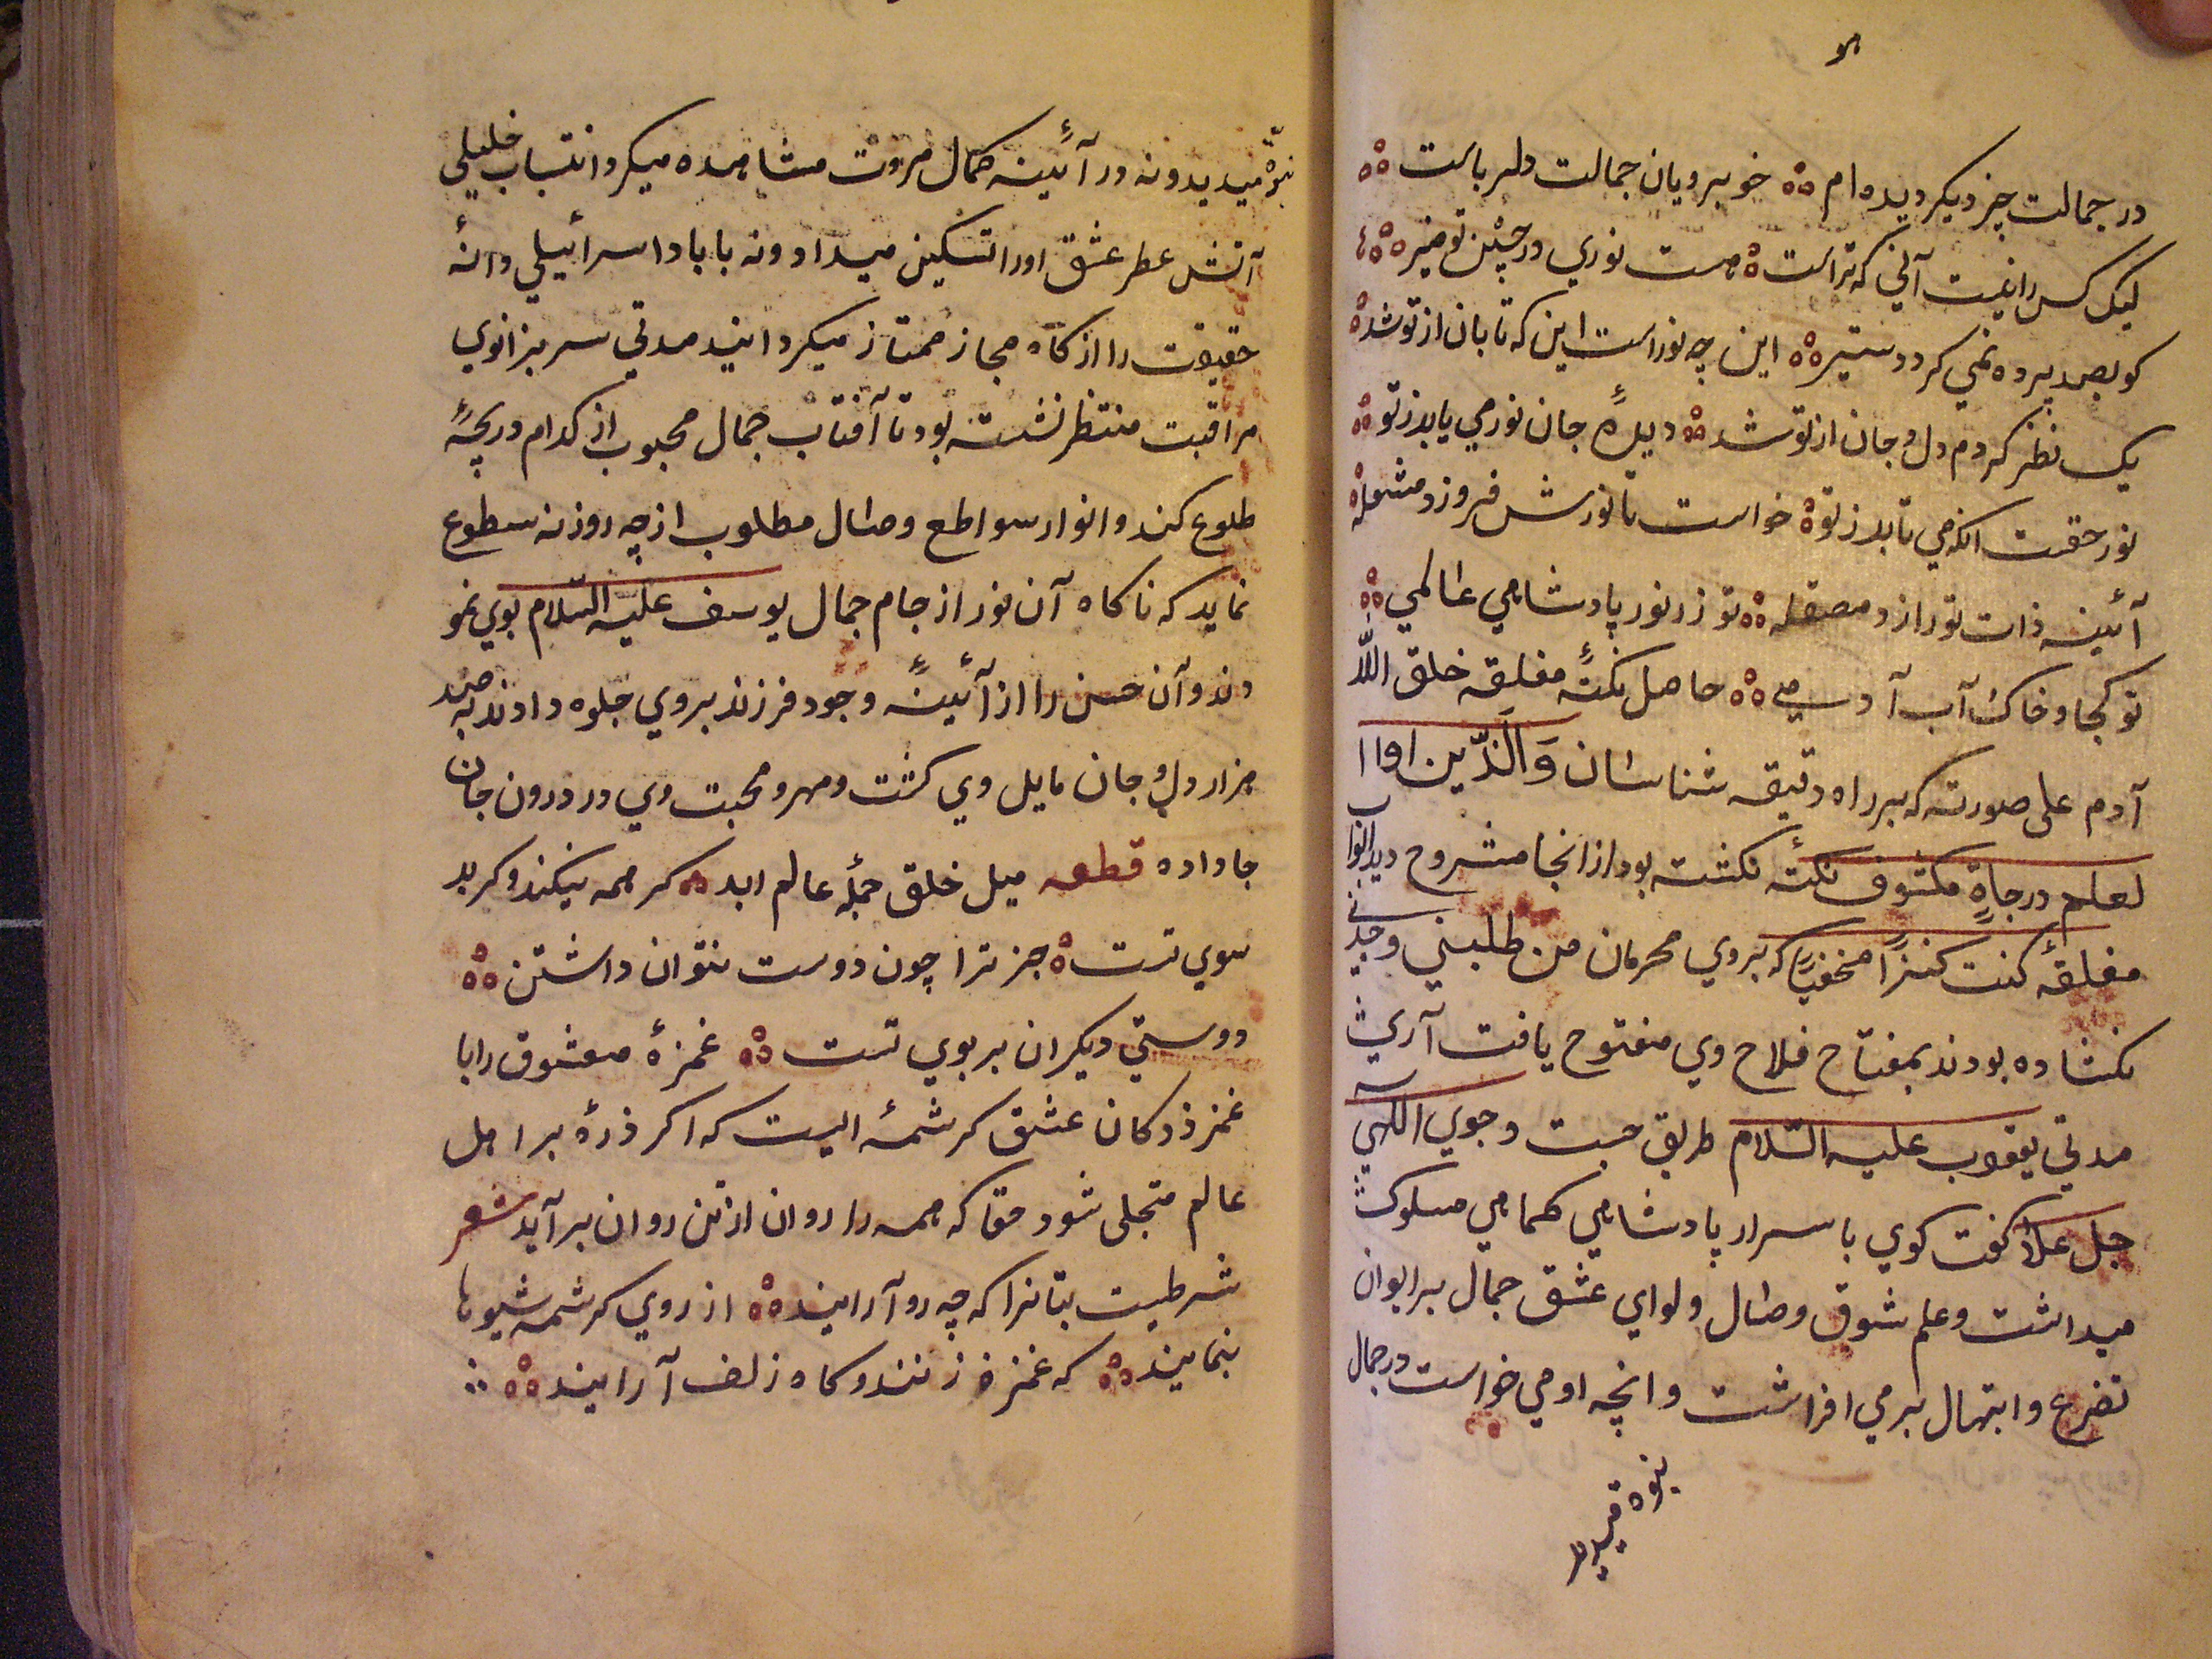 هو
در جمالت چیز دیکر دیده ام خوبرویان جمالت دلرباست
لیک کس را نیست آنی که تراست هست نوري در جبین تو منیر
کو بصد پرده نمي کردد ستیر این چه نوراست این که تابان از تو شد
یک نظر کردم دل و جان از تو شد دیدهٔ جان نور مي یابد ز تو
نور حقت انکه مي تابد ز تو خواست تا نورش فروزد مشعله
آئینه ذات تو را زد مصقله تو ز نور پادشاهي عالمي
تو کجا و خاک آب آدمي حاصل نکتهٔ مغلقه خلق الله
آدم علی صورته که بر راه دقیقه شناسان وَالَّذین اوتوا
لعلم درجاةٍ مکشوف نکتهٔ نکشته بود از انجا مشروح دید ابواب
مغلقهٔ کنت کنزًا مخفیًا که بروي محرمان من طلبني وجدني
نکشاده بودند بمفتاح فلاح وي مفتوح یافت آري
مدتي یعقوب علیه السّلام طریق جست وجوي اللهي
جل علا کفت کوي باسرار پادشاهي کماهي مسلوک
میداشت و علم شوق وصال ولواي عشق جمال بر ایوان
تضرع و ابتهال بر مي افراشت وانچه او مي خواست در جمال
بنوه میدید
بنوّه میدید ونه در آئینه کمال مروت مشاهده میکرد انتساب خلیلي
آتش عطر عشق اورا تسکین میداد ونه بابا دا اسرائیلي دانهٔ
حقیقت را از کاه مجاز ممتاز میکردانید مدتي سر بزانوي
مراقبت منتظر نشسته بود تا آفتاب جمال محبوب از کدام دریچهٔ
طلوع کند وانوار سواطع وصال مطلوب از چه روزنه سطوع
نماید که ناکاه آن نور از جام جمال یوسف علیه السّلام بوي نمو
دند وآن حسن را از آئینهٔ وجود فرزند بروي جلوه دادند بصد
هزار دل و جان مایل وي کشت ومهر ومحبت وي در درون جان
جا داده قطعه میل خلق جملهٔ عالم ابد کر همه نیکند و کر بد
سوي تست جز ترا چون دوست نتوان داشتن
دوستي دیکران بر بوي تست غمزهٔ معشوق را با
غمزذدکان عشق کرشمهٔ الیست که اکر ذرهٔ بر اهل
عالم متجلی شود حقا که همه را روان از تن روان بر آید شعر
شرطیست بتانرا که چه رو آرایند از روي کرشمه شیوها
بنمایند که غمزه زنند و کاه زلف آرایند